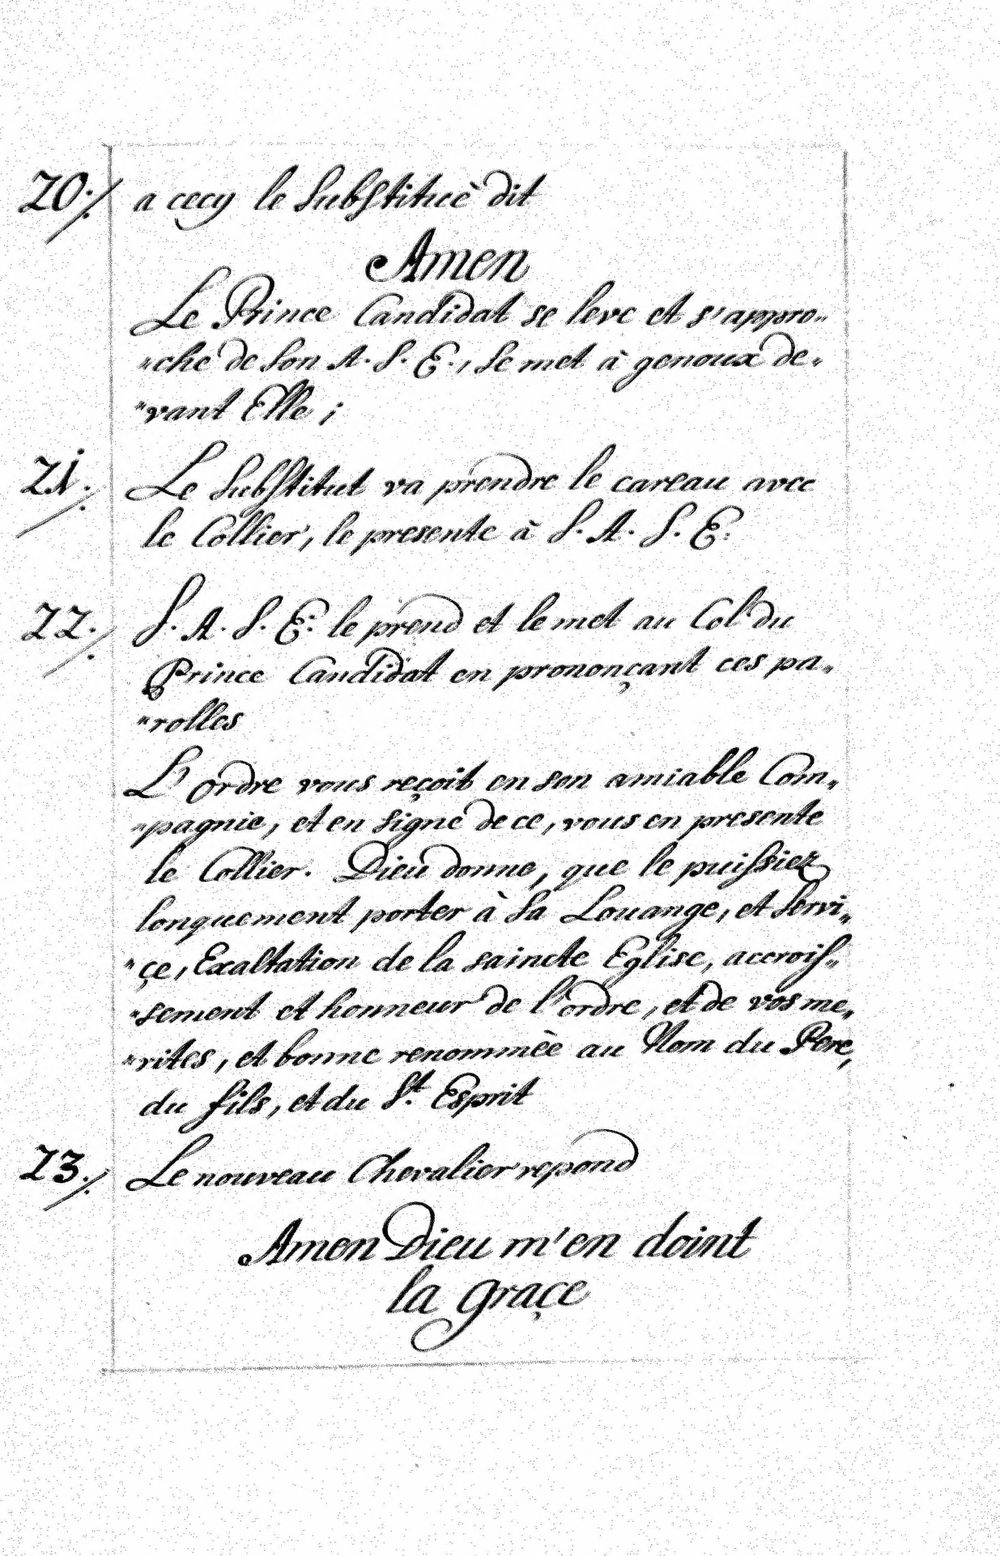 20·/. a cecy le Substituè dit
Amen
Le Prince Candidat se leve et s'appro„
„che de Son A. S. E., Se met à genoux de„
„vant Elle ;
21./. Le Substitut va prendre le careau avec
le Collier, le presente à S. A. S. E:
22./. S. A. S. E: le prend et le met au Col du
Prince Candidat en prononçant ces pa„
„rolles
L'ordre vous reçoit en son amiable Com„
„pagnie, et en Signe de ce, vous en presente
le Collier. Dieu donne, que le puissiez
lonquement porter à Sa Louange, et Servi„
„çe, Exaltation de la saincte Eglise, accrois„
„sement et honneur de l'ordre, et de vos me„
„rites, et bonne renommèe au Nom du Pere,
du fils, et du St. Esprit
23./. Le nouveau Chevalier repond
Amen Dieu m'en doint
la graçe